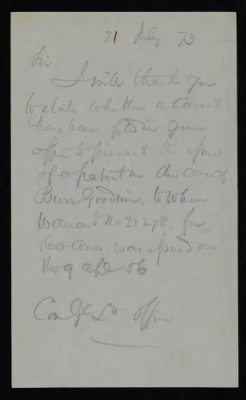 21 July 73
Sir
I will thank you
to state whether a Caveat
has been filed in your
office to prevent the issue
of a patent in the case of
Burr Goodwin, to whom
Warrant No 21278, for
acres was issued on
the 9
Office